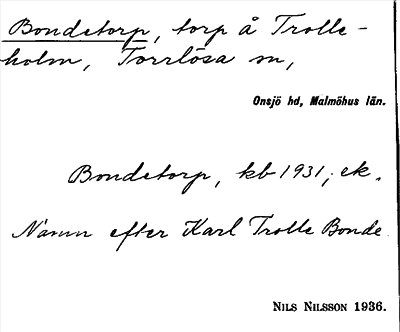 Bondetorp, torp å Trolle-
holm, Torrlösa sn,
Onsjö hd, Malmöhus län.
Bondetorp, kb 1931, ek.
Namn efter Karl Trolle Bonde.
NILS NILSSON 1936.